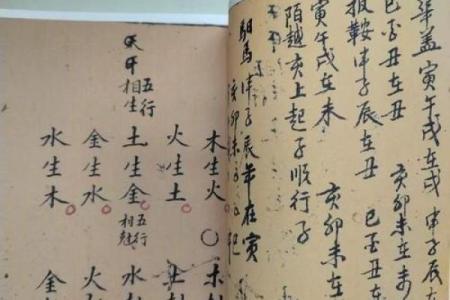 華盖寅午戌在戌 申子辰
巳酉丑在丑 亥卯未在未
鞍申子辰在丑 巳酉丑在
寅午戌在未 亥卯未在
陌越亥上起子順行子
馬申子辰年在寅
亥卯未
木生火
火生土
天干五行相生
土生金 五行相尅
金生水
水生木
木
土
水
火
金